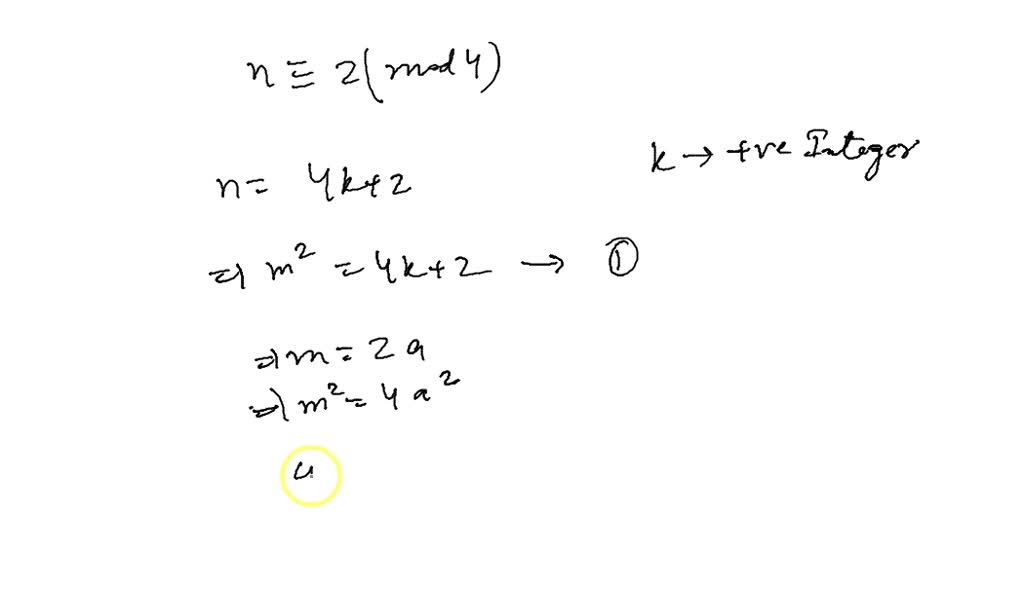 n ≡ 2(mod 4)
k → +ve Integer
n = 4k+2
⇒ m² = 4k+2 → ①
⇒ m = 2a
⇒ m² = 4a²
4